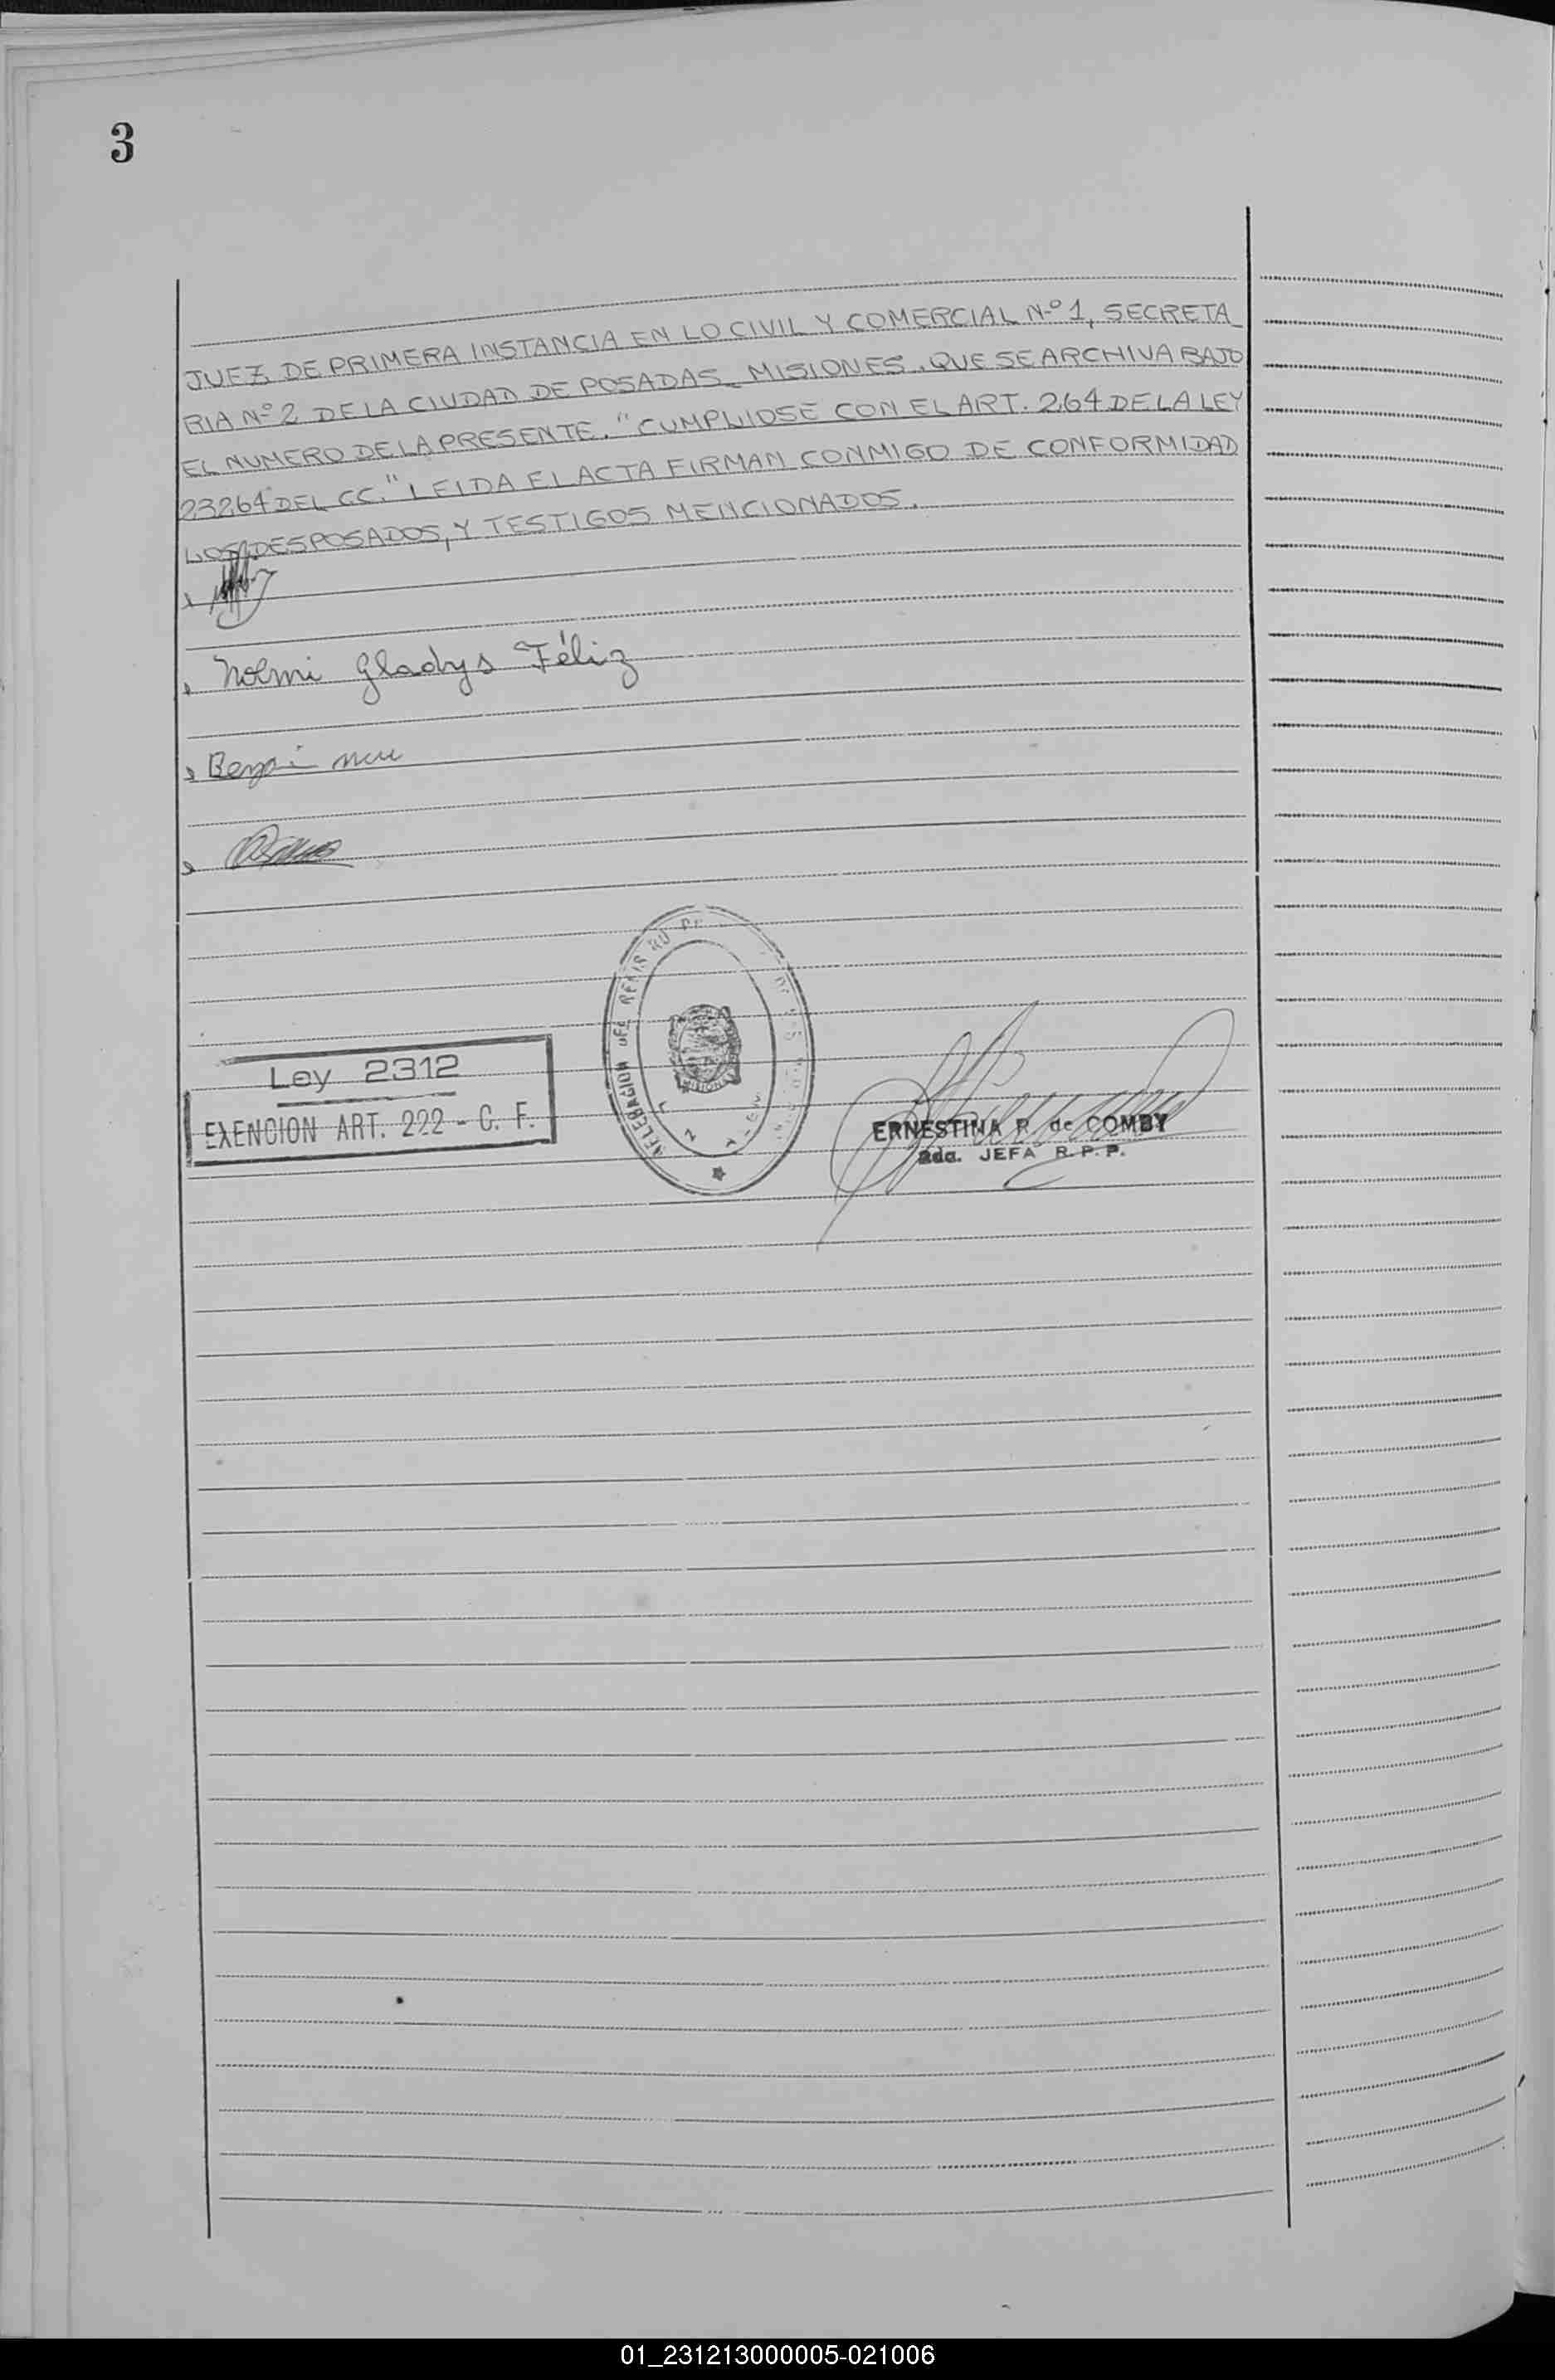 3
JUEZ DE PRIMERA INSTANCIA EN LO CIVIL Y COMERCIAL Nº 1, SECRETA
RIA Nº 2 DE LA CIUDAD DE POSADAS - MISIONES. QUE SE ARCHIVA BAJO
EL NUMERO DE LA PRESENTE. "CUMPLIOSE CON EL ART. 264 DE LA LEY
23264 DEL CC." LEIDA EL ACTA FIRMAN CONMIGO DE CONFORMIDAD
LOS DESPOSADOS, Y TESTIGOS MENCIONADOS.
Noemi Gladys Féliz
Ley 2312
EXENCION ART. 222 - C. F.
MISIONES
ERNESTINA R. de COMBY
2da. JEFA R. P. P.
01_231213000005-021006